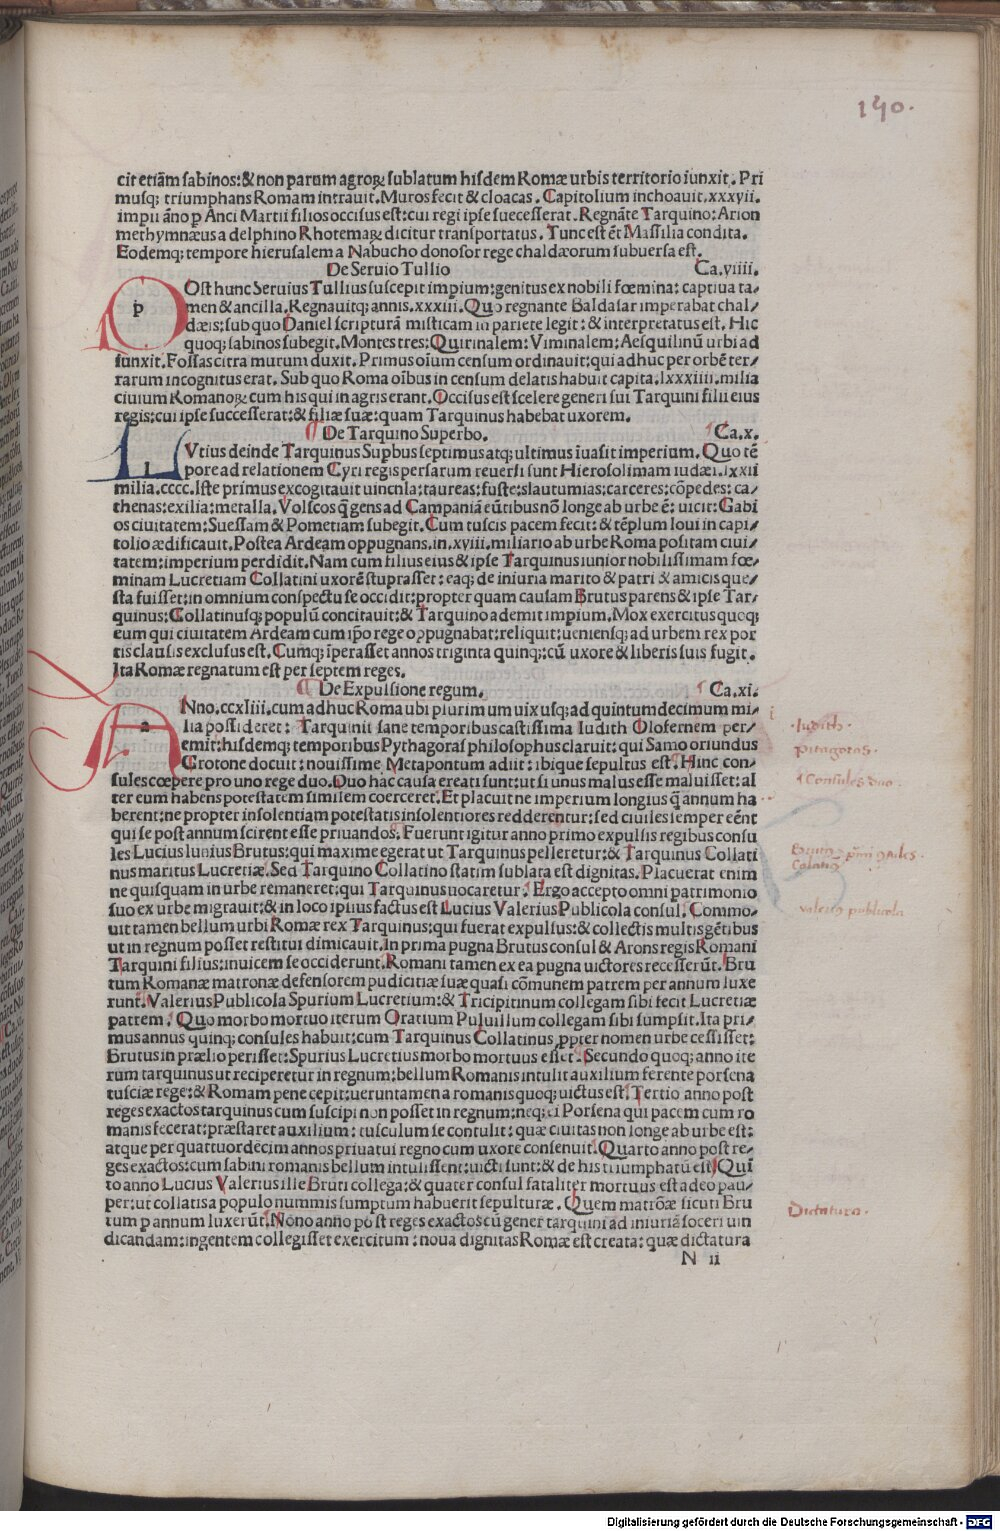 190.
cit etiãm sabinos:& non parum agroꝝ sublatum hisdem Romæ urbis territorio iunxit. Pri
musq; triumphans Romam intrauit. Muros fecit & cloacas. Capitolium inchoauit.xxxvii.
impii ãno p Anci Martii filios occisus est:cui regi ipse suecesserat. Regnãte Tarquino:Arion
methymnæus a delphino Rhotemaꝝ dicitur transportatus. Tunc est ẽt Massilia condita.
Eodemq; tempore hierusalem a Nabucho donosor rege chaldæorum subuersa est.
De Seruio Tullio Ca.viiii.
p
Ost hunc Seruius Tullius suscepit impium:genitus ex nobili fœmina: captiua ta/
men & ancilla. Regnauitq; annis.xxxiii. Quo regnante Baldasar imperabat chal/
dæis:sub quo Daniel scripturã misticam in pariete legit: & interpretatus est. Hic
quoq; sabinos subegit. Montes tres: Quirinalem: Viminalem: Aesquilinũ urbi ad
iunxit. Fossas citra murum duxit. Primus oĩum censum ordinauit:qui adhuc per orbẽ ter/
rarum incognitus erat. Sub quo Roma oĩbus in censum delatis habuit capita.lxxxiiii.milia
ciuium Romanoꝝ cum his qui in agris erant. Occisus est scelere generi sui Tarquini filii eius
regis:cui ipse successerat:& filiæ suæ:quam Tarquinus habebat uxorem.
De Tarquino Superbo. Ca.x.
L
Vtius deinde Tarquinus Supbus septimus atq; ultimus ĩuasit imperium. Quo tẽ
pore ad relationem Cyri regis persarum reuersi sunt Hierosolimam iudæi.lxxii
milia.cccc. Iste primus excogitauit uincnla:taureas:fuste:slautumias:carceres:cõpedes: ca/
thenas:exilia:metalla. Volscos q̃ gens ad Campaniã eũtibus nõ longe ab urbe ẽ: uicit: Gabi
os ciuitatem:Suessam & Pometiam subegit. Cum tuscis pacem fecit: & tẽplum Ioui in capi/
tolio ædificauit. Postea Ardeam oppugnans.in.xviii.miliario ab urbe Roma positam ciui/
tatem:imperium perdidit. Nam cum filius eius & ipse Tarquinus iunior nobilissimam fœ/
minam Lucretiam Collatini uxorẽ stuprasset: eaq; de iniuria marito & patri & amicis que/
sta fuisset:in omnium conspectu se occidit:propter quam causam Brutus parens & ipse Tar/
quinus:Collatinusq; populũ concitauit:& Tarquino ademit impium. Mox exercitus quoq;
eum qui ciuitatem Ardeam cum ip̃o rege oppugnabat:reliquit:ueniensq; ad urbem rex por
tis clausis exclusus est. Cumq; ĩperasset annos triginta quinq;:cũ uxore & liberis suis fugit.
Ita Romæ regnatum est per septem reges.
De Expulsione regum. Ca.xi.
a
Nno.ccxliii.cum adhuc Roma ubi plurimum uix usq; ad quintum decimum mi/
lia possideret: Tarquinii sane temporibus castissima Iudith Olofernem per/
emit:hisdemq; temporibus Pythagoras philosophus claruit: qui Samo oriundus
Crotone docuit: nouissime Metapontum adiit: ibique sepultus est. Hinc con/
sules cœpere pro uno rege duo. Quo hac causa creati sunt:ut si unus malus esse maluisset: al
ter eum habens potestatem similem coerceret. Et placuit ne imperium longius q̃ annum ha
berent:ne propter insolentiam potestatis insolentiores redderentur:sed ciuiles semper eẽnt
qui se post annum scirent esse priuandos. Fuerunt igitur anno primo expulsis regibus consu
les Lucius Iunius Brutus:qui maxime egerat ut Tarquinus pelleretur:& Tarquinus Collati
nus maritus Lucretiæ. Sed Tarquino Collatino statim sublata est dignitas. Placuerat enim
ne quisquam in urbe remaneret:qui Tarquinus uocaretur. Ergo accepto omni patrimonio
suo ex urbe migrauit:& in loco ipiius factus est Lucius Valerius Publicola consul. Commo/
uit tamen bellum urbi Romæ rex Tarquinus:qui fuerat expulsus:& collectis multis gẽtibus
ut in regnum posset restitui dimicauit. In prima pugna Brutus consul & Arons regis Romani
Tarquini filius:inuicem se occiderunt. Romani tamen ex ea pugna uictores recesserũt. Bru
tum Romanæ matronæ defensorem pudicitiæ suæ quasi cõmunem patrem per annum luxe
runt. Valerius Publicola Spurium Lucretium:& Tricipitinum collegam sibi fecit Lucretiæ
patrem. Quo morbo mortuo iterum Oratium Puluillum collegam sibi sumpsit. Ita pri/
mus annus quinq; consules habuit:cum Tarquinus Collatinus ꝓpter nomen urbe cessisset:
Brutus in prælio perisset:Spurius Lucretius morbo mortuus esset. Secundo quoq; anno ite
rum tarquinus ut reciperetur in regnum:bellum Romanis intulit auxilium ferente porsena
tusciæ rege:& Romam pene cepit:ueruntamen a romanis quoq; uictus est. Tertio anno post
reges exactos tarquinus cum suscipi non posset in regnum:neq; ei Porsena qui pacem cum ro
manis fecerat:præstaret auxilium: tusculum se contulit: quæ ciuitas non longe ab urbe est:
atque per quattuordecim annos priuatui regno cum uxore consenuit. Quarto anno post re/
ges exactos:cum sabini romanis bellum intulissent:uicti sunt:& de his triumphatũ est. Quĩ
to anno Lucius Valerius ille Bruti collega:& quater consul fataliter mortuus est adeo pau/
per:ut collatis a populo nummis sumptum habuerit sepulturæ. Quem matrõæ sicuti Bru
tum p annum luxerũt. Nono anno post reges exactos cũ gener tarquini ad iniuriã soceri uin
dicandam:ingentem collegisset exercitum: noua dignitas Romæ est creata: quæ dictatura
N ii
Iudith.
Pitagoras.
Consules duo.
Brutus
valerius publicola
Dictatura.
Digitalisierung gefördert durch die Deutsche Forschungsgemeinschaft - DFG